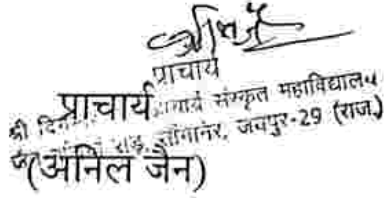 प्राचार्य
प्राचार्य
श्री संस्कृत महाविद्यालय
सांगानेर, जयपुर-29 (राज.)
(अनिल जैन)